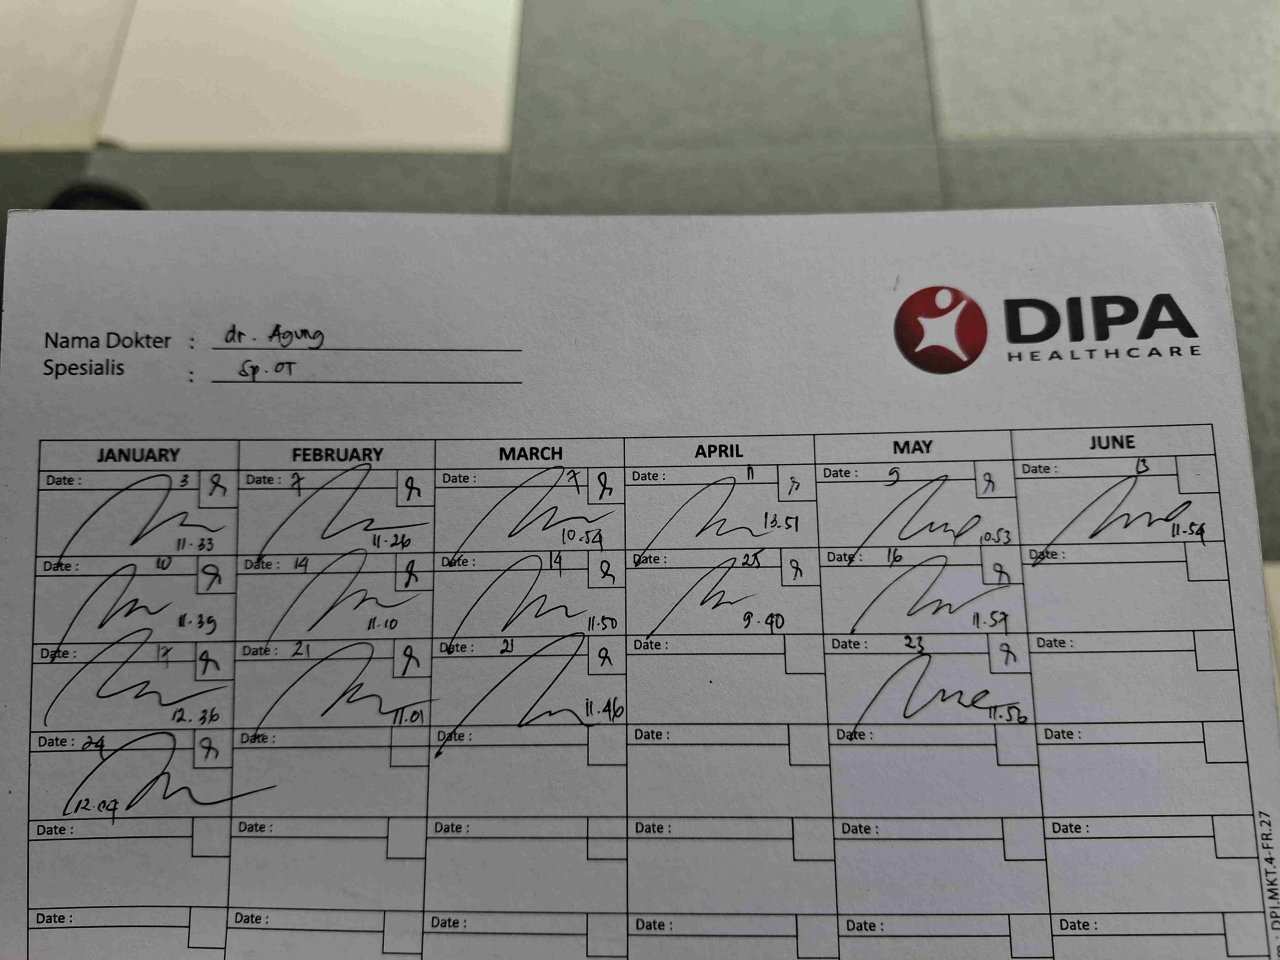 DIPA
HEALTHCARE
Nama Dokter : dr. Agung
Spesialis : Sp. OT
JANUARY FEBRUARY MARCH APRIL MAY JUNE
Date : 3 Date : 7 Date : 7 Date : 11 Date : 9 Date : 13
11.33 11.26 10.54 13.51 10.53 11.54
Date : 10 Date : 14 Date : 14 Date : 25 Date : 16 Date :
11.39 11.10 11.50 9.40 11.57
Date : 17 Date : 21 Date : 21 Date : Date : 23 Date :
12.36 11.01 11.46 11.56
Date : 24 Date : Date : Date : Date : Date :
12.09
Date : Date : Date : Date : Date : Date :
Date : Date : Date : Date : Date : Date :
: DPI.MKT.4-FR.27